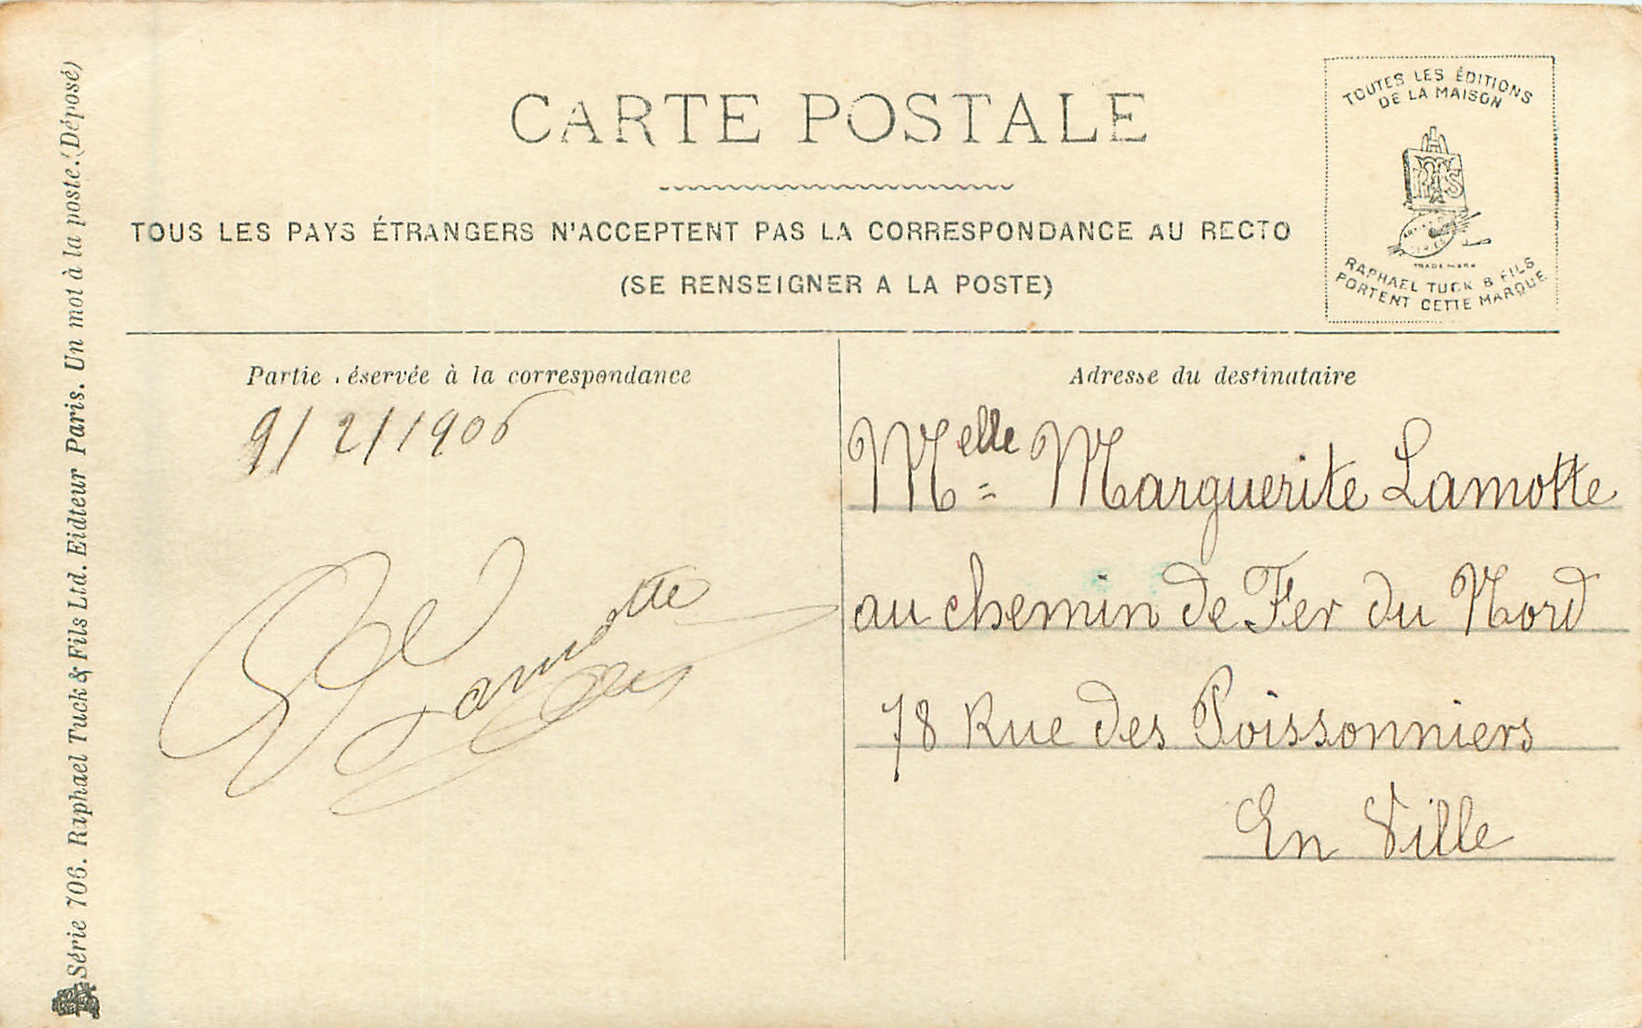 CARTE POSTALE
TOUS LES PAYS ÉTRANGERS N'ACCEPTENT PAS LA CORRESPONDANCE AU RECTO
(SE RENSEIGNER A LA POSTE)
TOUTES LES ÉDITIONS
DE LA MAISON
TRADE MARK
RAPHAEL TUCK & FILS
PORTENT CETTE MARQUE
Série 706. Raphael Tuck & Fils Ltd. Eidteur Paris. Un mot à la poste. (Déposé)
Partie réservée à la correspondance
9/2/1906
Lamotte
Adresse du destinataire
Melle Marguerite Lamotte
au chemin de Fer du Nord
78 Rue des Poissonniers
En Ville